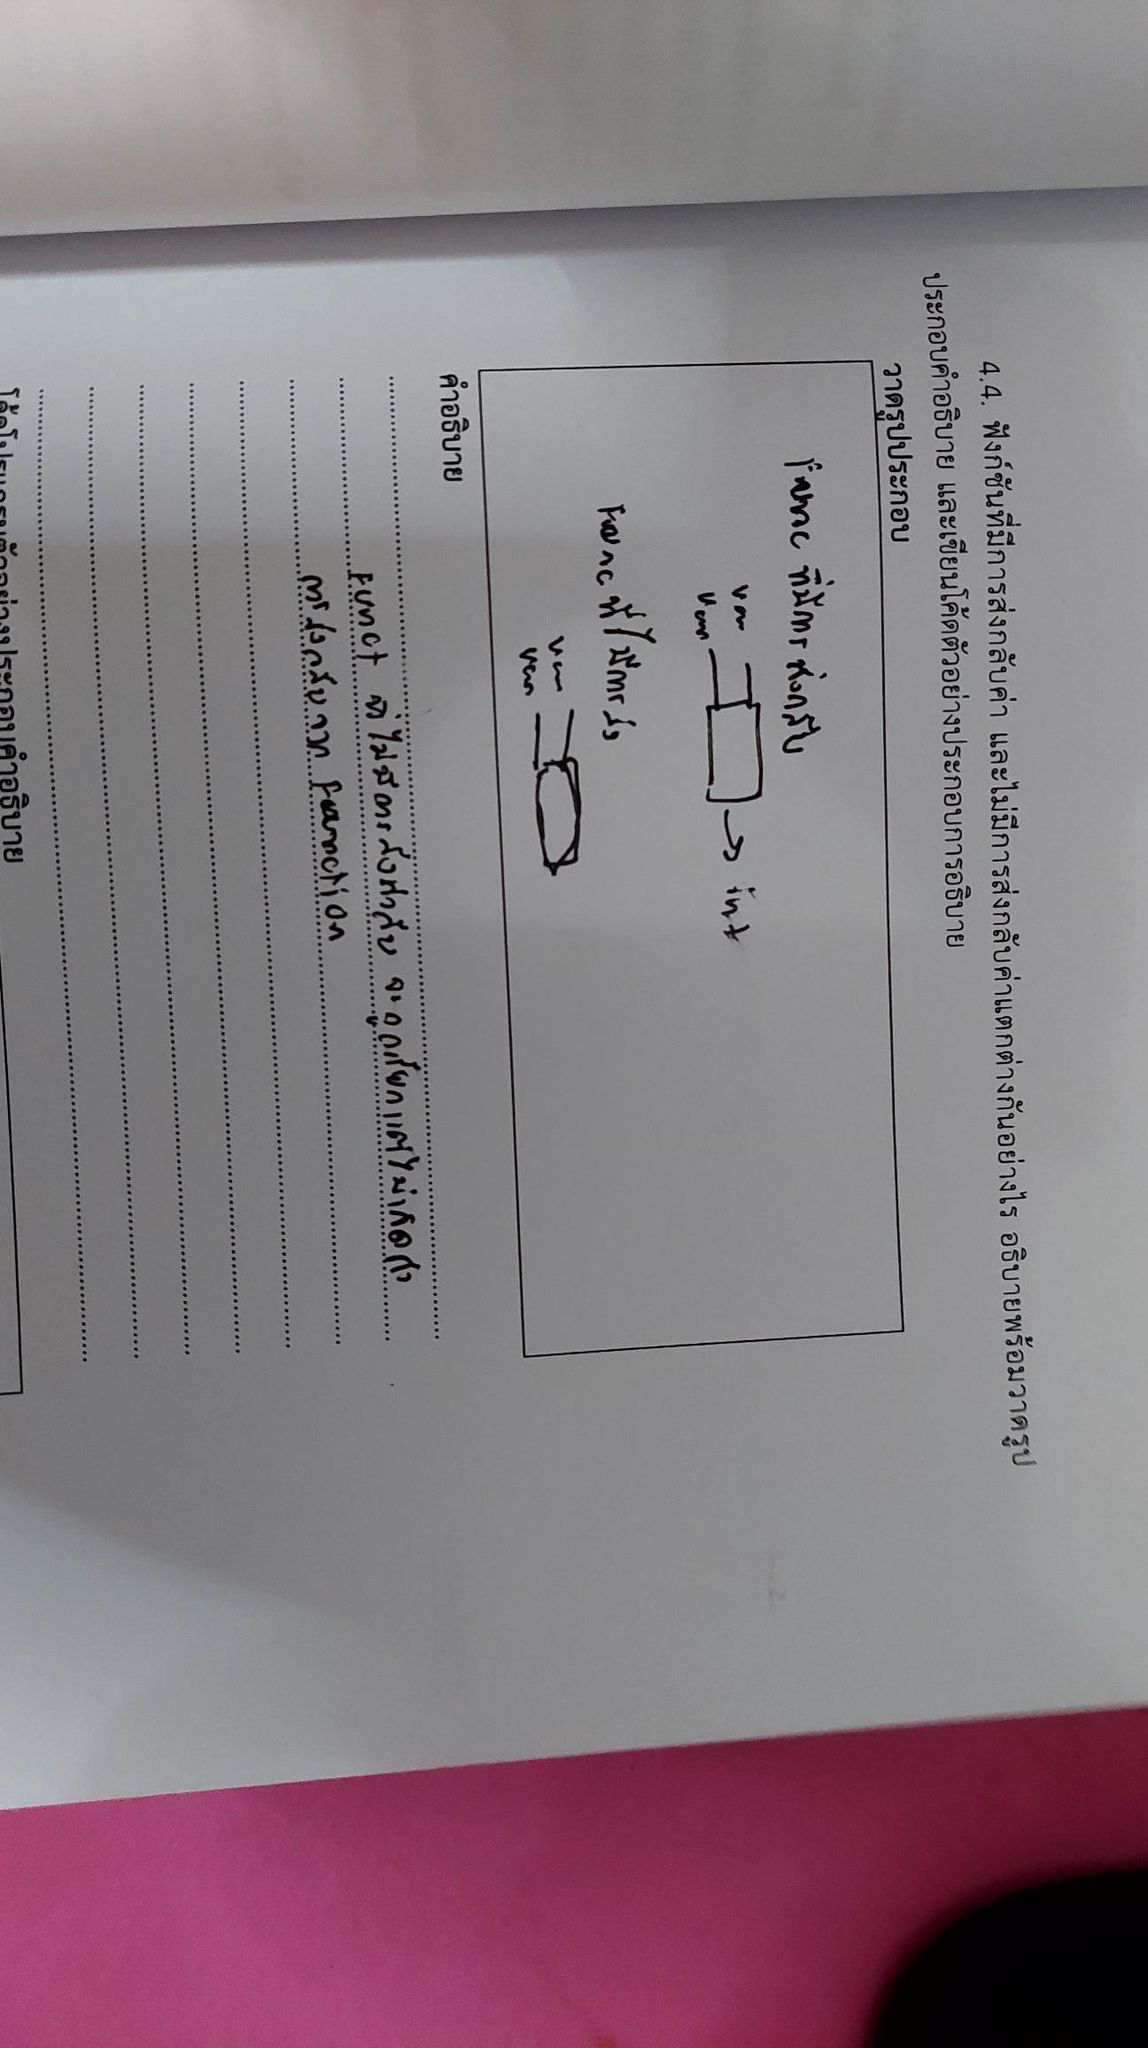 4.4. ฟังก์ชันที่มีการส่งกลับค่า และไม่มีการส่งกลับค่าแตกต่างกันอย่างไร อธิบายพร้อมวาดรูป
ประกอบคำอธิบาย และเขียนโค้ดตัวอย่างประกอบการอธิบาย
วาดรูปประกอบ
Func ที่มีการส่งกลับ
int
Func ที่ไม่มีการส่ง
คำอธิบาย
Funct ที่ไม่มีการส่งค่ากลับ จะถูกเรียกแต่ไม่เกิด
การส่งกลับจาก Function
โค้ดโปรแกรมตัวอย่างประกอบคำอธิบาย